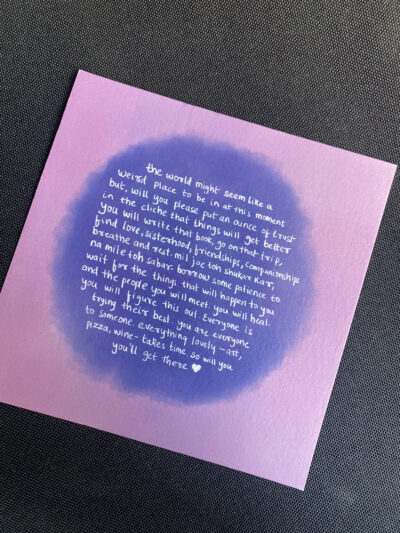 the world might seem like a
weird place to be in at this moment
but, will you please put an ounce of trust
in the cliche that things will get better
you will write that book, go on that trip,
find love, sisterhood, friendships, companionships
breathe and rest. mil jae toh shukar kar,
na mile toh sabar. borrow some patience to
wait for the things that will happen to you
and the people you will meet. you will heal.
you will figure this out. Everyone is
trying their best. you are everyone
to someone. everything lovely - art,
pizza, wine - takes time. so will you
you'll get there ♥